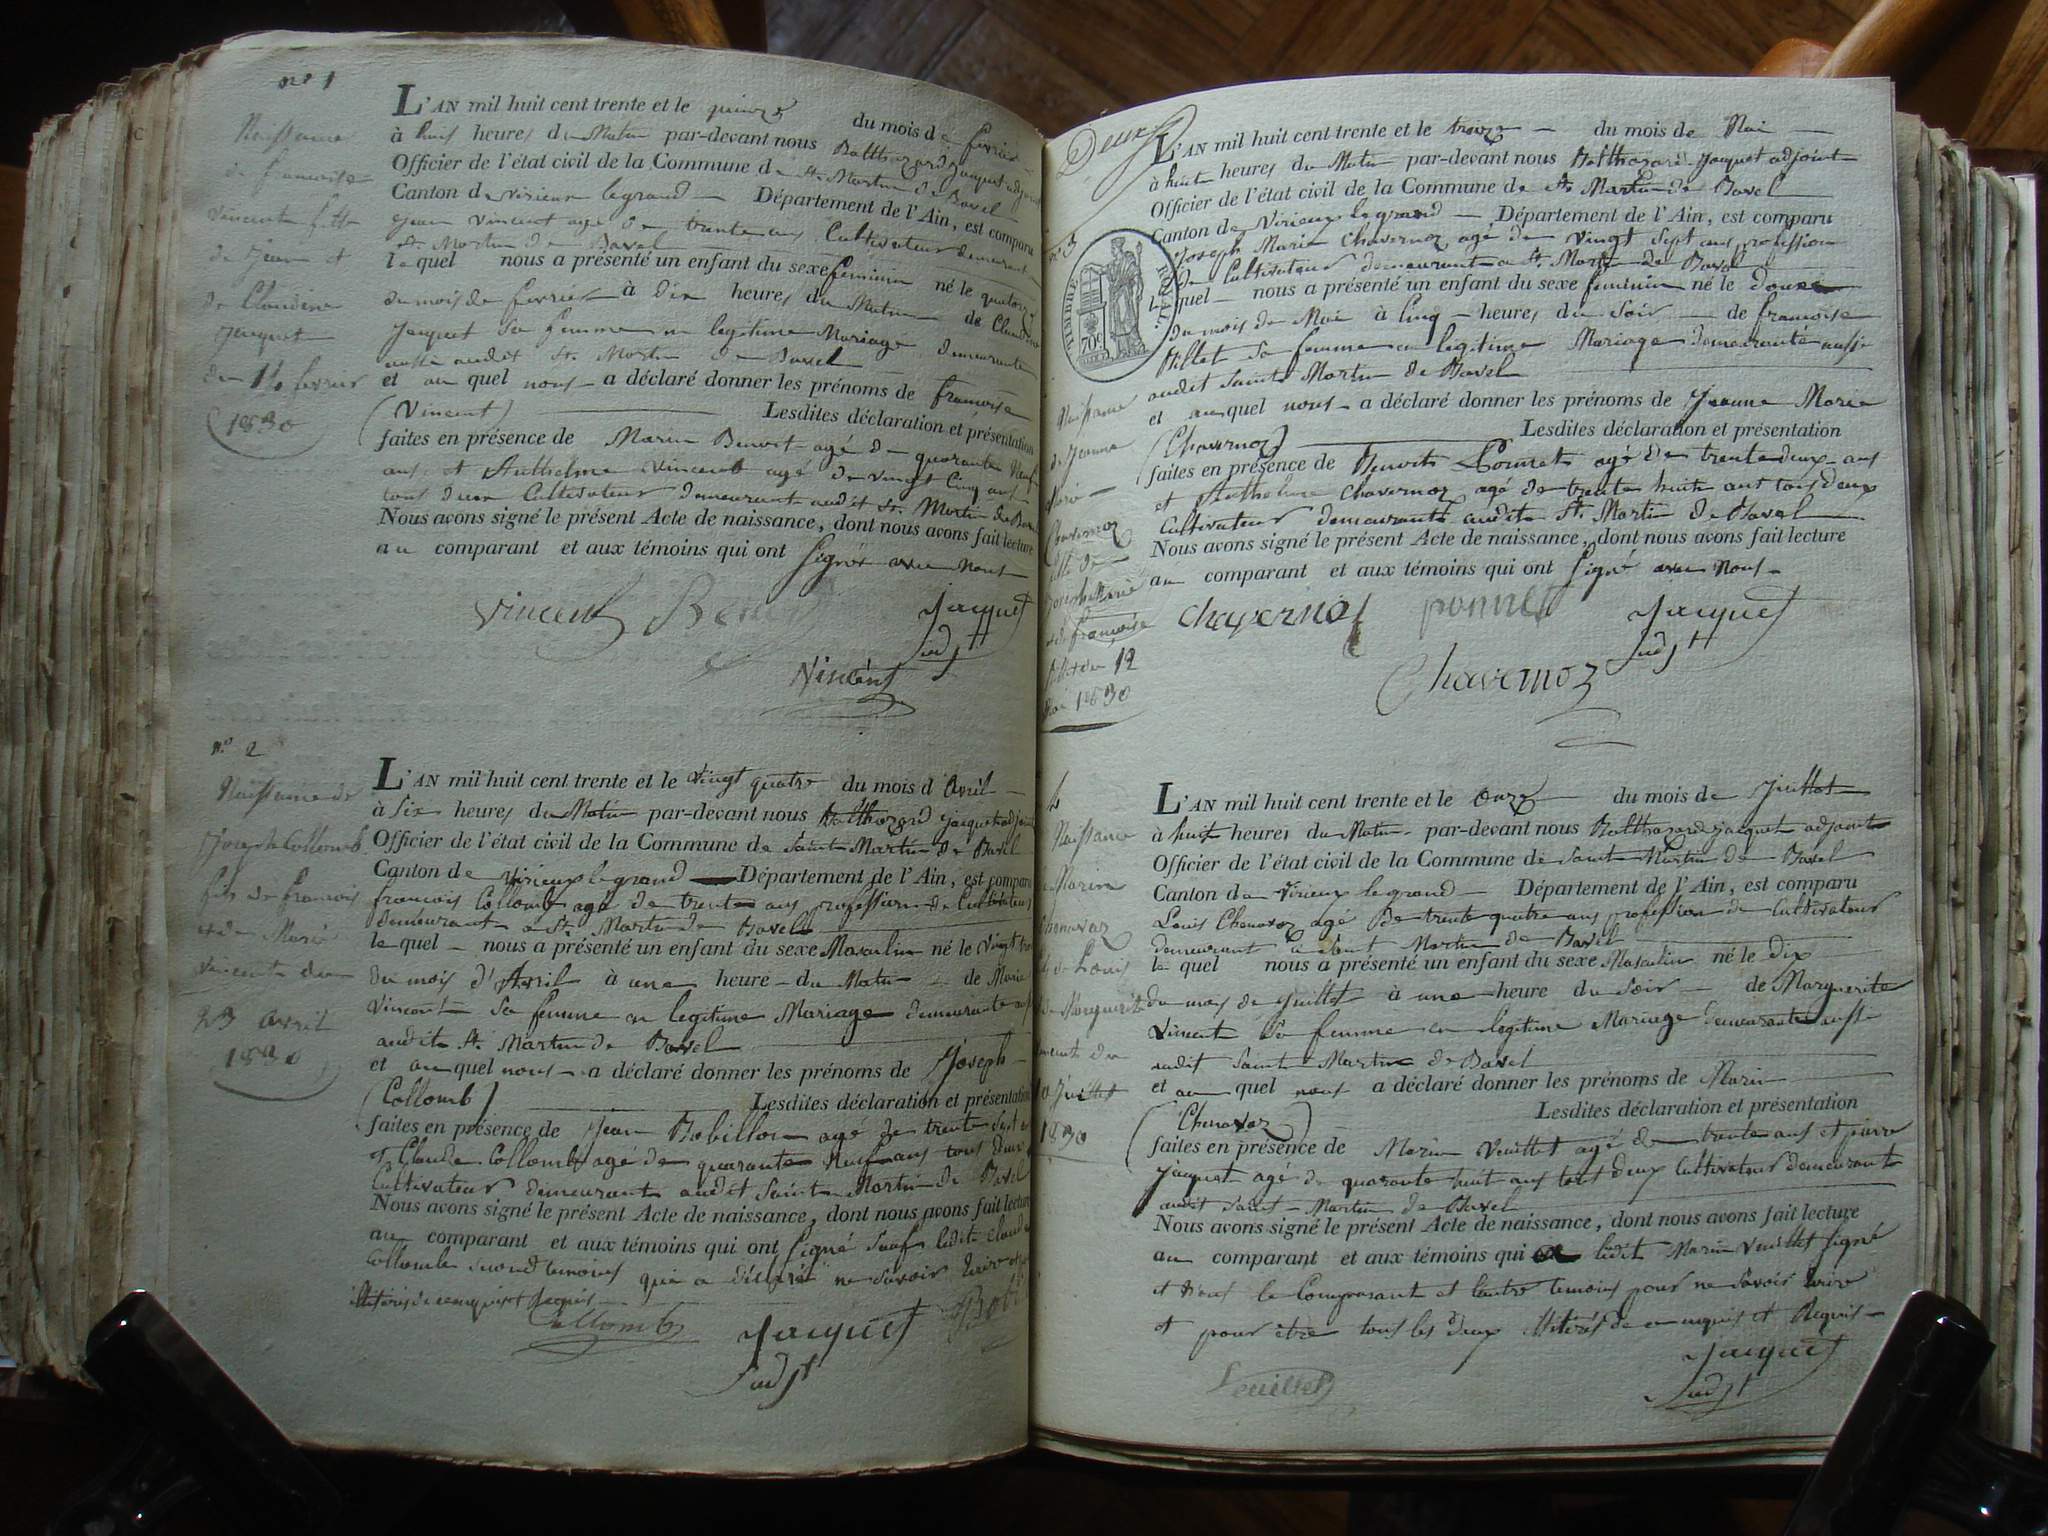 nº 1
Naissance
de francoise
vincent fille
de Jean et
de Claudine
Jacquet
du 14 fevrier
1830
L'AN mil huit cent trente et le quinze du mois de fevrier
à huit heures du Matin par-devant nous Balthazard Jacquet adjoint
Officier de l'état civil de la Commune de St. Martin de Bavel
Canton de virieux legrand — Département de l'Ain, est comparu
Jean vincent agé de trente ans Cultivateur demeurant
St. Martin de Bavel
lequel nous a présenté un enfant du sexe feminin né le quatorze
du mois de fevrier à dix heures du Matin de Claudine
Jacquet sa femme en legitime Mariage demeurante
aussi audit St. Martin de Bavel
et au quel nous a déclaré donner les prénoms de francoise
(Vincent) Lesdites déclaration et présentation
faites en présence de Marin Benoit agé de quarante Neuf
ans et Anthelme vincent agé de vingt Cinq ans
tous deux Cultivateur demeurant audit St. Martin de Bavel
Nous avons signé le présent Acte de naissance, dont nous avons fait lecture
au comparant et aux témoins qui ont signé avec nous
Vincent Jacquet
adjt
Vincent
nº 2
Naissance de
Joseph Collomb
fils de francois
et de Marie
vincent du
23 avril
1830
L'AN mil huit cent trente et le vingt quatre du mois d'Avril
à Six heures du Matin par-devant nous Balthazard Jacquet adjoint
Officier de l'état civil de la Commune de Saint Martin de Bavel
Canton de virieux legrand — Département de l'Ain, est comparu
francois Collomb agé de trente ans profession de Cultivateur
demeurant a St. Martin de Bavel
lequel — nous a présenté un enfant du sexe Masculin né le vingt trois
du mois d'Avril à une heure du Matin de Marie
Vincent sa femme en legitime Mariage demeurante aussi
audit St. Martin de Bavel
et au quel nous a déclaré donner les prénoms de Joseph
(Collomb) Lesdites déclaration et présentation
faites en présence de Jean Bobillon agé de trente Sept
et Claude Collomb agé de quarante Neuf ans tous deux
Cultivateur demeurant audit Saint Martin de Bavel
Nous avons signé le présent Acte de naissance, dont nous avons fait lecture
au comparant et aux témoins qui ont signé sauf ledit Claude
Collomb second temoins qui a déclaré ne savoir Ecrire
illiteré de ce enquis et Requis
Collomb Jacquet Bobi
adjt
Deux
nº 3
TIMBRE ROYAL
70c
Naissance
de Jeanne
Marie
Chavernoz
fille de
Joseph Marie
et de francoise
Billet du 12
Mai 1830
L'AN mil huit cent trente et le treize — du mois de Mai
à huit heures du Matin par-devant nous Balthazard Jacquet adjoint
Officier de l'état civil de la Commune de St. Martin de Bavel
Canton de Virieux legrand — Département de l'Ain, est comparu
Joseph Marie Chavernoz agé de vingt Sept ans profession
de Cultivateur demeurant a St. Martin de Bavel
lequel — nous a présenté un enfant du sexe feminin né le douze
du mois de Mai à Cinq heures du Soir — de francoise
Billet sa femme en legitime Mariage demeurante aussi
audit Saint Martin de Bavel
et au quel nous a déclaré donner les prénoms de Jeanne Marie
(Chavernoz) Lesdites déclaration et présentation
faites en présence de Benoit agé de trente deux ans
et Anthelme Chavernoz agé de trente huit ans tous deux
Cultivateur demeurants audit St. Martin de Bavel
Nous avons signé le présent Acte de naissance, dont nous avons fait lecture
au comparant et aux témoins qui ont signé avec Nous
Chavernoz Jacquet
adjt
Chavernoz
4
Naissance
de Marin
Chenavaz
fils de Louis
et de Marguerite
Vincent du
10 Juillet
1830
L'AN mil huit cent trente et le Onze du mois de Juillet
à huit heures du Matin par-devant nous Balthazard Jacquet adjoint
Officier de l'état civil de la Commune de Saint Martin de Bavel
Canton de Virieux legrand — Département de l'Ain, est comparu
Louis Chenavaz agé de trente quatre ans profession de Cultivateur
demeurant a Saint Martin de Bavel
lequel nous a présenté un enfant du sexe Masculin né le dix
du mois de Juillet à une heure du Soir — de Marguerite
Vincent sa femme en legitime Mariage demeurante aussi
audit Saint Martin de Bavel
et au quel nous a déclaré donner les prénoms de Marin
(Chenavaz) Lesdites déclaration et présentation
faites en présence de Marin Veuillet agé de trente ans et pierre
Jacquet agé de quarante huit ans tous deux Cultivateur demeurants
audit Saint Martin de Bavel
Nous avons signé le présent Acte de naissance, dont nous avons fait lecture
au comparant et aux témoins qui ledit Marin Veuillet signé
et non le Comparant et l'autre temoins pour ne savoir Ecrire
et pour être tous les deux illiterés de ce enquis et Requis
Jacquet
Veuillet adjt